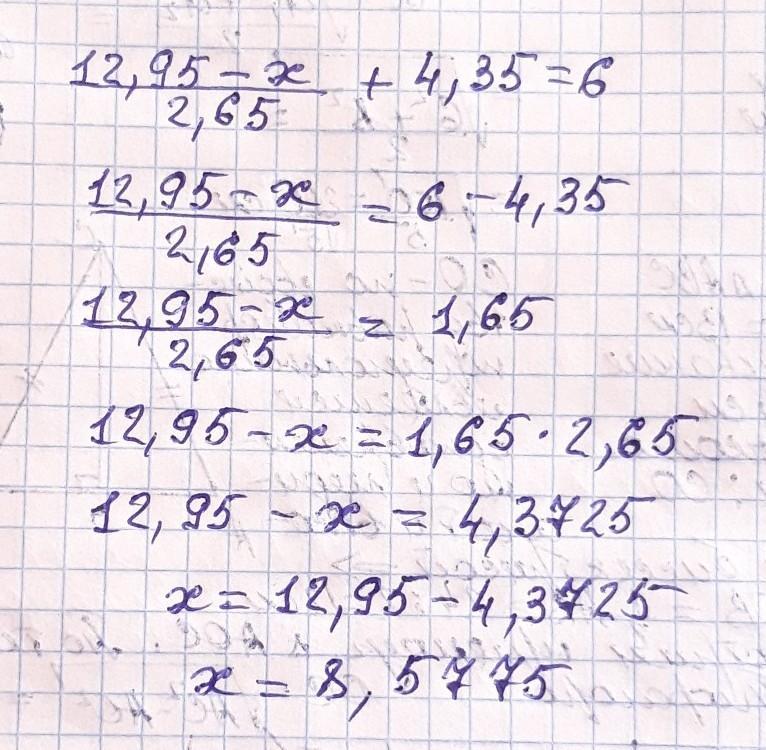 12,95 - x / 2,65 + 4,35 = 6
12,95 - x / 2,65 = 6 - 4,35
12,95 - x / 2,65 = 1,65
12,95 - x = 1,65 · 2,65
12,95 - x = 4,3725
x = 12,95 - 4,3725
x = 8,5775